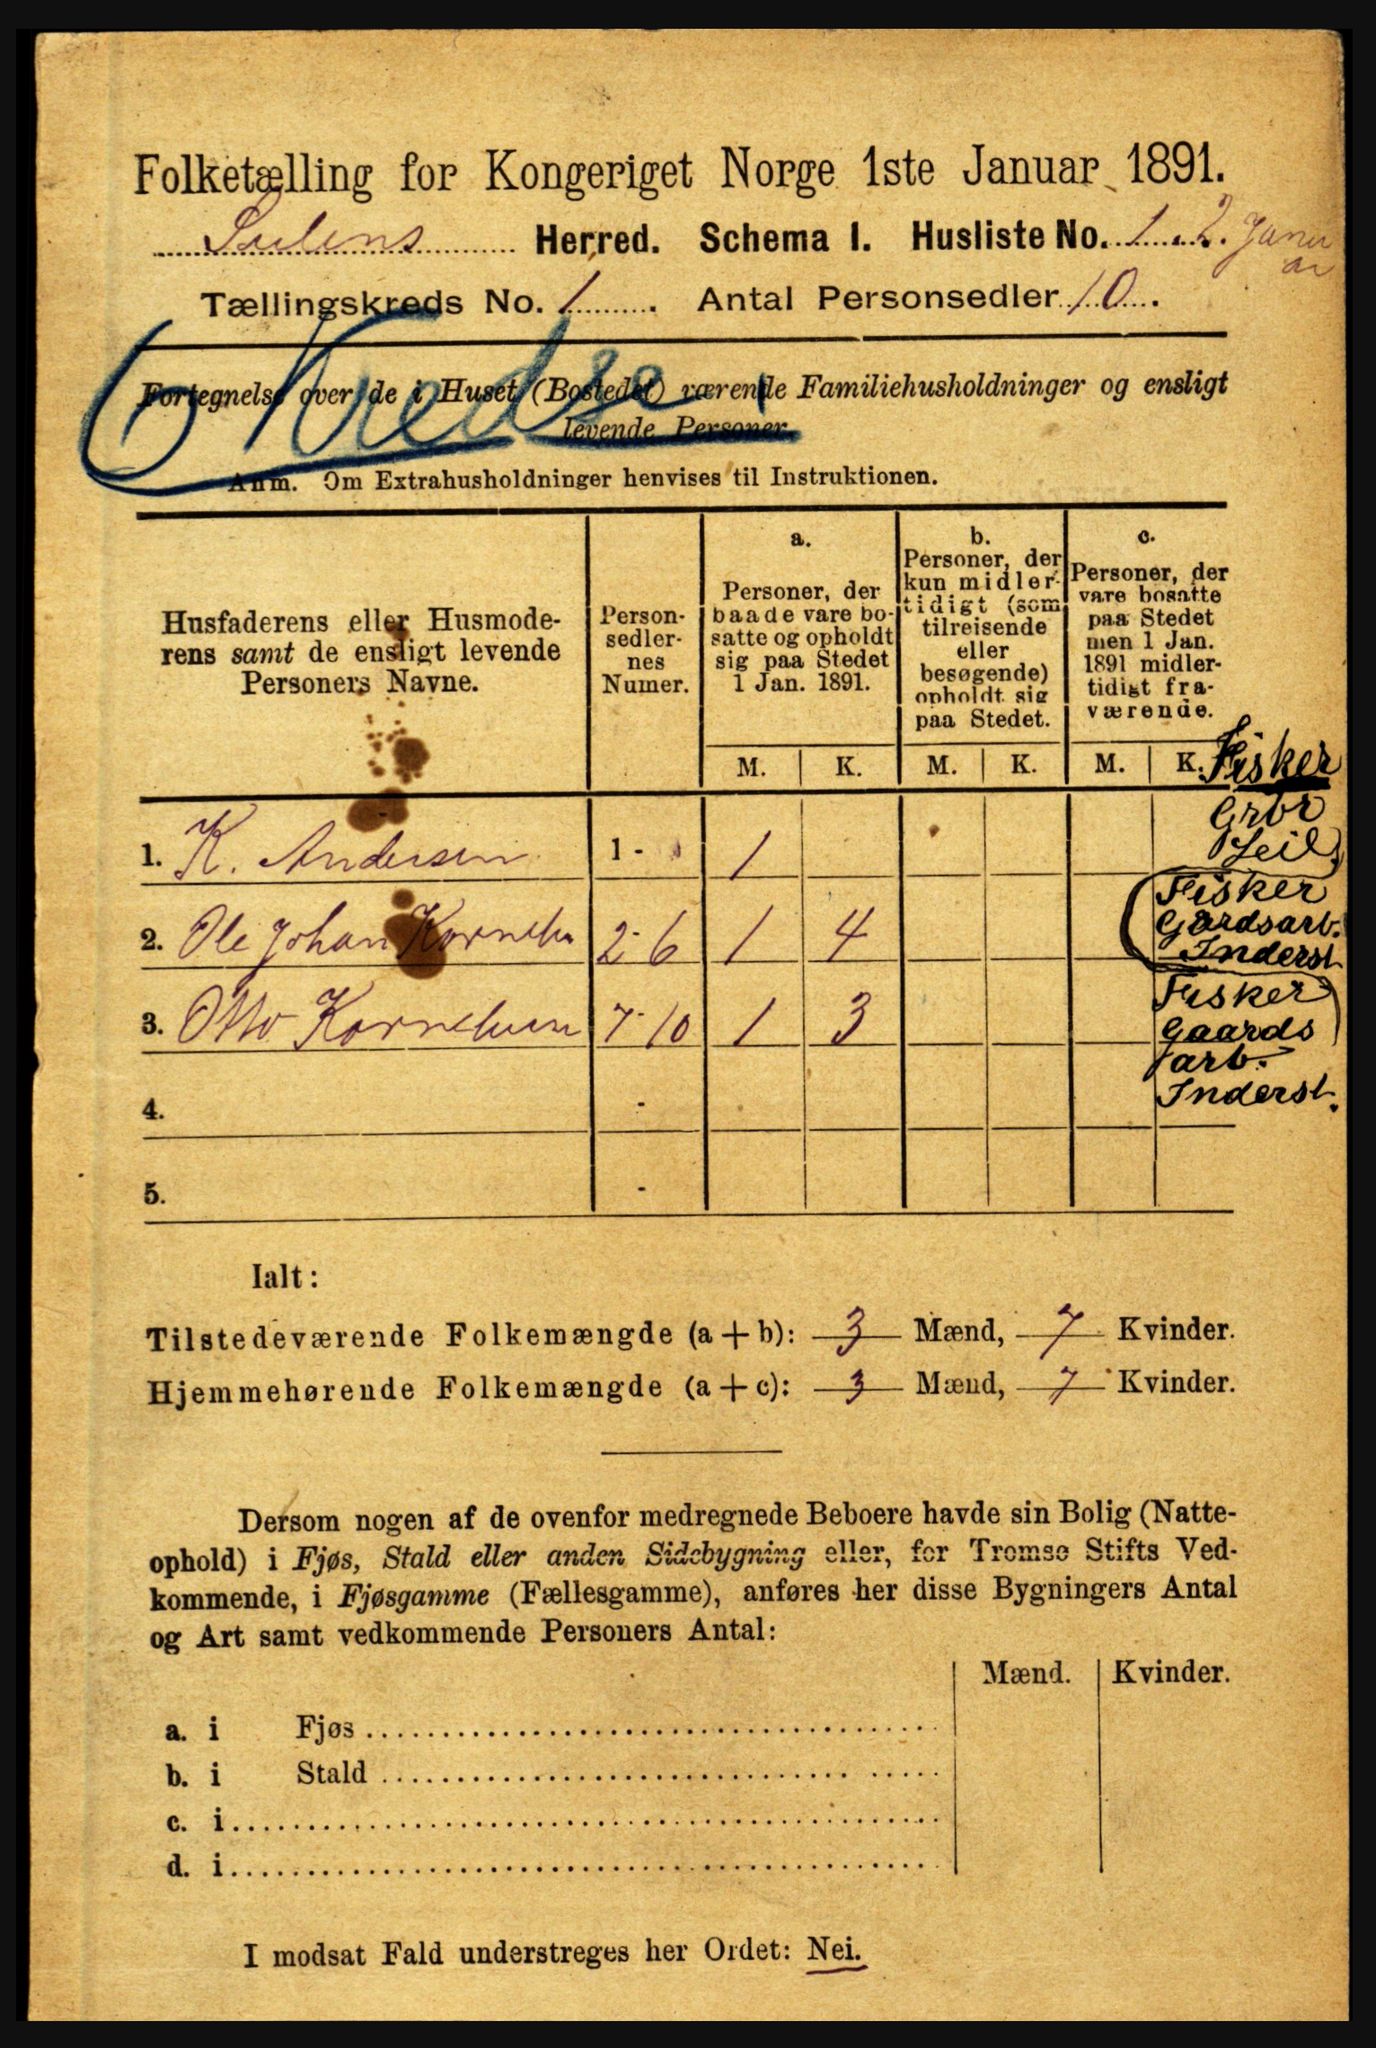 Folketælling for Kongeriget Norge 1ste Januar 1891.
Sulens Herred. Schema I. Husliste No. 1. 2. Janu
ar
Tællingskreds No. 1. Antal Personsedler 10.
Kreds 1
Fortegnelse over de i Huset (Bostedet) værende Familiehusholdninger og ensligt
levende Personer.
Anm. Om Extrahusholdninger henvises til Instruktionen.
Husfaderens eller Husmode-
rens samt de ensligt levende
Personers Navne.
Person-
sedler-
nes
Numer.
a.
Personer, der
baade vare bo-
satte og opholdt
sig paa Stedet
1 Jan. 1891.
b.
Personer, der
kun midler-
tidigt (som
tilreisende
eller
besøgende)
opholdt sig
paa Stedet.
c.
Personer, der
vare bosatte
paa Stedet
men 1 Jan.
1891 midler-
tidigt fra-
værende.
M. K. M. K. M. K.
Fisker
Grbr
Leil.
1. K. Andersen 1 - 1 1
Fisker
Gardsarb.
Inderst
2. Ole Johan Korneliu 2-6 1 4
Fisker
Gaards
arb.
Inderst.
3. Otto Korneliusen 7-10 1 3
4. -
5. -
Ialt:
Tilstedeværende Folkemængde (a+b): 3 Mænd, 7 Kvinder.
Hjemmehørende Folkemængde (a+c): 3 Mænd, 7 Kvinder.
Dersom nogen af de ovenfor medregnede Beboere havde sin Bolig (Natte-
ophold) i Fjøs, Stald eller anden Sidebygning eller, for Tromsø Stifts Ved-
kommende, i Fjøsgamme (Fællesgamme), anføres her disse Bygningers Antal
og Art samt vedkommende Personers Antal:
Mænd. Kvinder.
a. i Fjøs
b. i Stald
c. i
d. i
I modsat Fald understreges her Ordet: Nei.